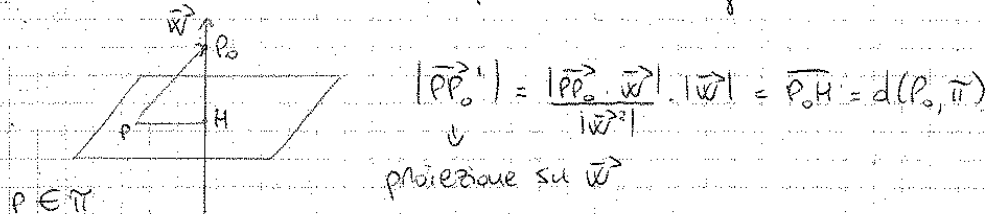 w⃗
P₀
P H
P ∈ π
|PP₀⃗'| = |PP₀⃗ · w⃗| / |w⃗²| · |w⃗| = P₀H̅ = d(P₀, π)
↓
proiezione su w⃗